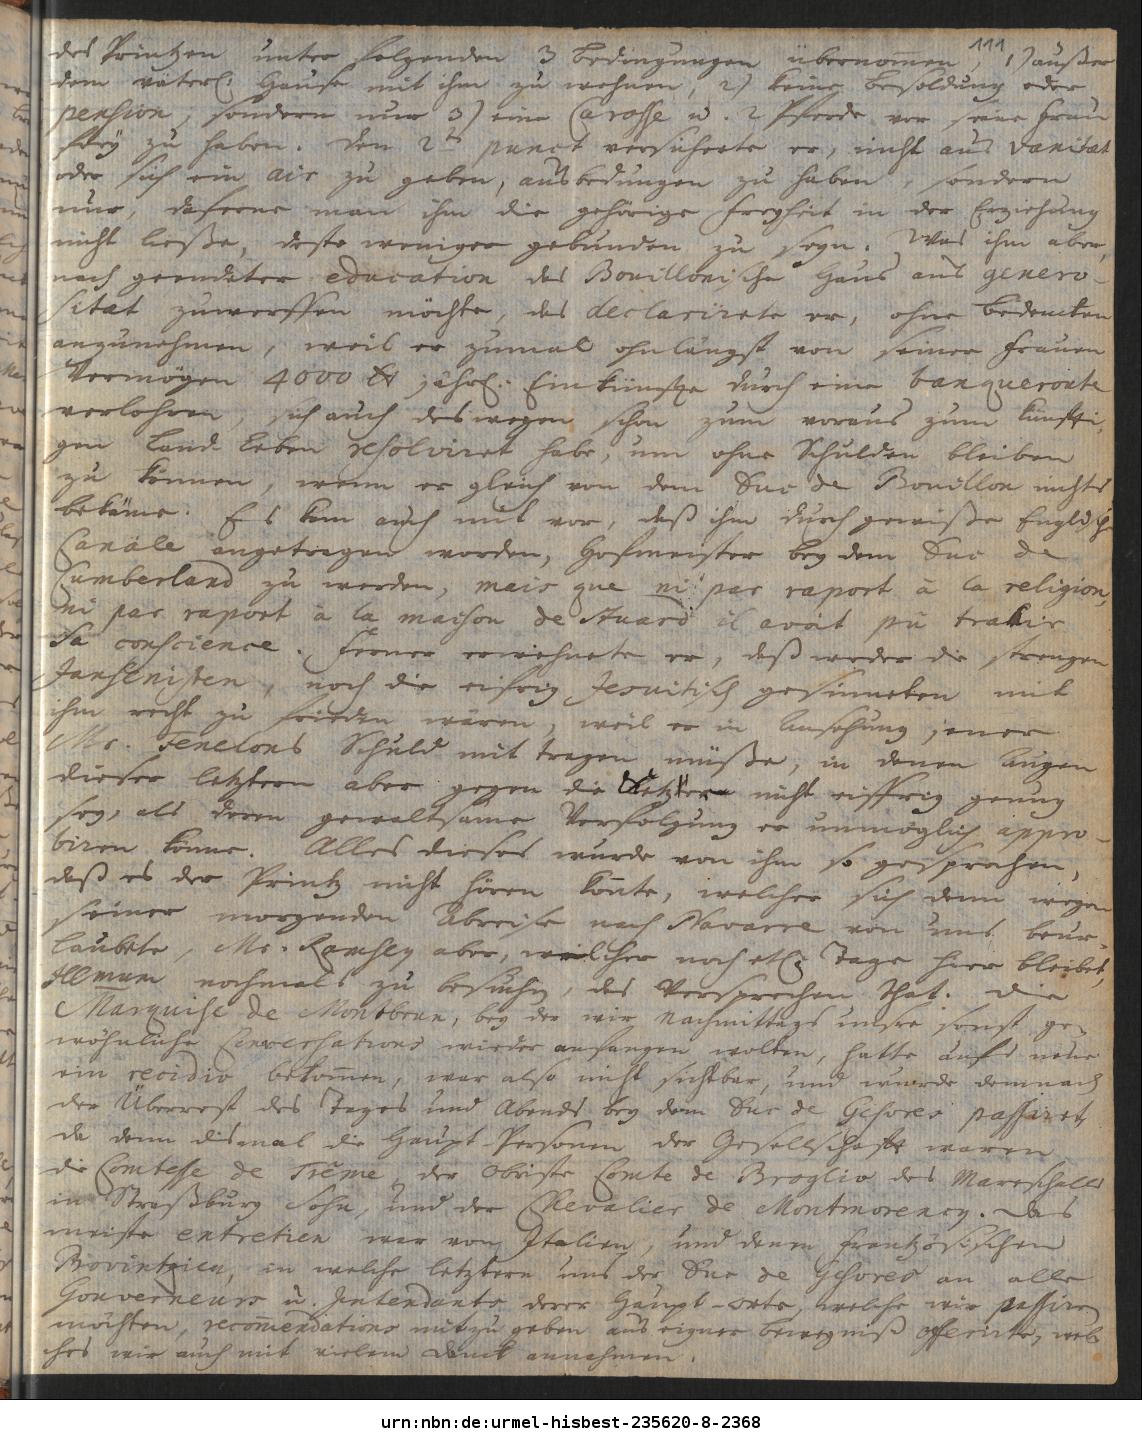 111
des Printzen unter folgenden 3 Bedingungen übernom̅en, 1) außer
dem väterl. Hause mit ihm zu wohnen, 2) keine Besoldung oder
pension, sondern nur 3) eine Carosse u. 2 Pferde vor seine Frau
frey zu haben. Den 2t punct versicherte er, nicht aus vanität
oder sich ein air zu geben, ausbedungen zu haben, sondern
nur, daferne man ihm die gehörige Freyheit in der Erziehung
nicht ließe, desto weniger gebunden zu seyn. Was ihm aber,
nach geendeter education das Bouillonische Haus aus genero-
sitat zuwerffen möchte, das declarirete er, ohne bedencken
anzunehmen, weil er zumal ohnlängst von seiner Frauen
Vermögen 4000 jährl. Einkünffte durch eine banqueroute
verlohren, sich auch deswegen schon zum voraus zum künffti-
gen Land Leben resolviret habe, um ohne Schulden bleiben
zu können, wenn er gleich von dem Duc de Bouillon nichts
bekäme. Es kam auch mit vor, daß ihm durch gewiße Englische
Canäle angetragen worden, Hofmeister bey dem Duc de
Cumberland zu werden, mais que ni par raport à la religion,
ni par raport à la maison de Stuard il avoit pû trahir
sa conscience. Ferner erwehnete er, daß weder die strengen
Jansenisten, noch die eifrig Jesuitisch gesinneten mit
ihm recht zu frieden wären, weil er in Ansehung jener
Mr. Fenelons Schuld mit tragen müße, in denen Augen
dieser letztern aber gegen die nicht eiffrig genug
sey, als deren gewaltsame Verfolgung er unmöglich appro-
biren könne. Alles dieses wurde von ihm so gesprochen,
daß es der Printz nicht hören konte, welcher sich denn wegen
seiner morgenden Abreise nach Navarre von uns beur-
laubete, Mr. Ramsey aber, welcher noch etl. Tage hier bleibet,
nochmals zu besuchen, das Versprechen that. Die
Marquise de Montbrun, bey der wir Nachmittags unsre sonst ge-
wöhnliche Conversations wieder anfangen wolten, hatte aufs neue
ein recidiv bekom̅en, war also nicht sichtbar, und wurde demnach
der Überrest des Tages und Abends bey dem Duc de Gesvres passiret,
da denn dismal die Haupt Personen der Gesellschafft waren
die Comtesse de Treme, der Obriste Comte de Broglio des Mareschalls
in Straßburg Sohn, und der Chevalier de Montmorency. Das
meiste entretien war von Italien, und denen Frantzösischen
Provintzien, in welche letztern uns der Duc de Gesvres an alle
Gouverneurs u. Intendants derer Haupt-orte, welche wir passiren
möchten, recom̅endations mitzu geben aus eigner bewegniß offerirte, wel-
ches wir auch mit vielem Danck annahmen.
urn:nbn:de:urmel-hisbest-235620-8-2368